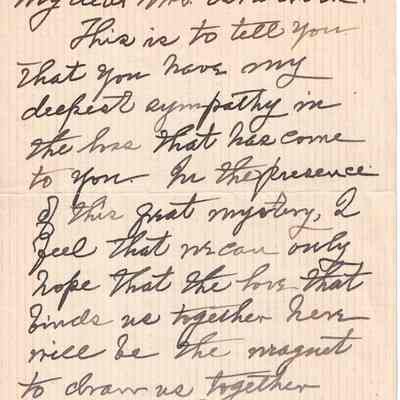 My dear Mrs.
This is to tell you
that you have my
deepest sympathy in
the loss that has come
to you. In the presence
of this great mystery, I
feel that we can only
hope that the love that
binds us together here
will be the magnet
to draw us together